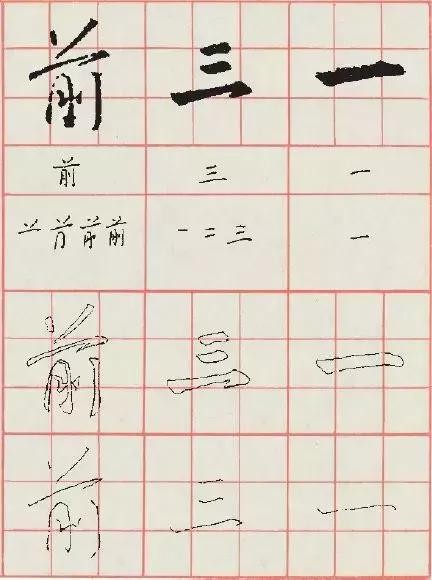 前 三 一
前 三 一
前 一 二 三 一
前 三 一
前 三 一